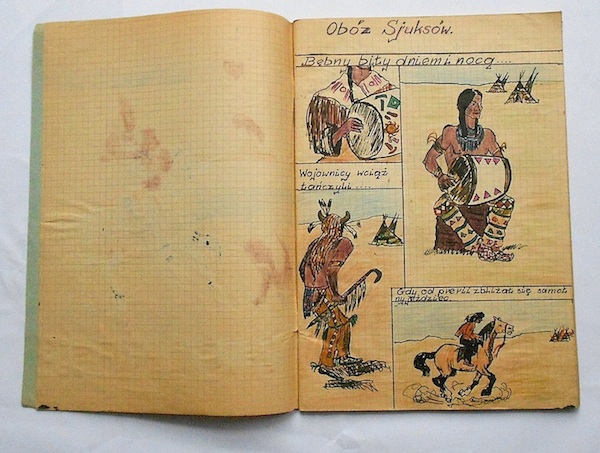 Obóz Sjuksów.
Bębny biły dniem i nocą....
Wojownicy wciąż
tańczyli....
Gdy od prerii zbliżał się samot
ny jeździec.